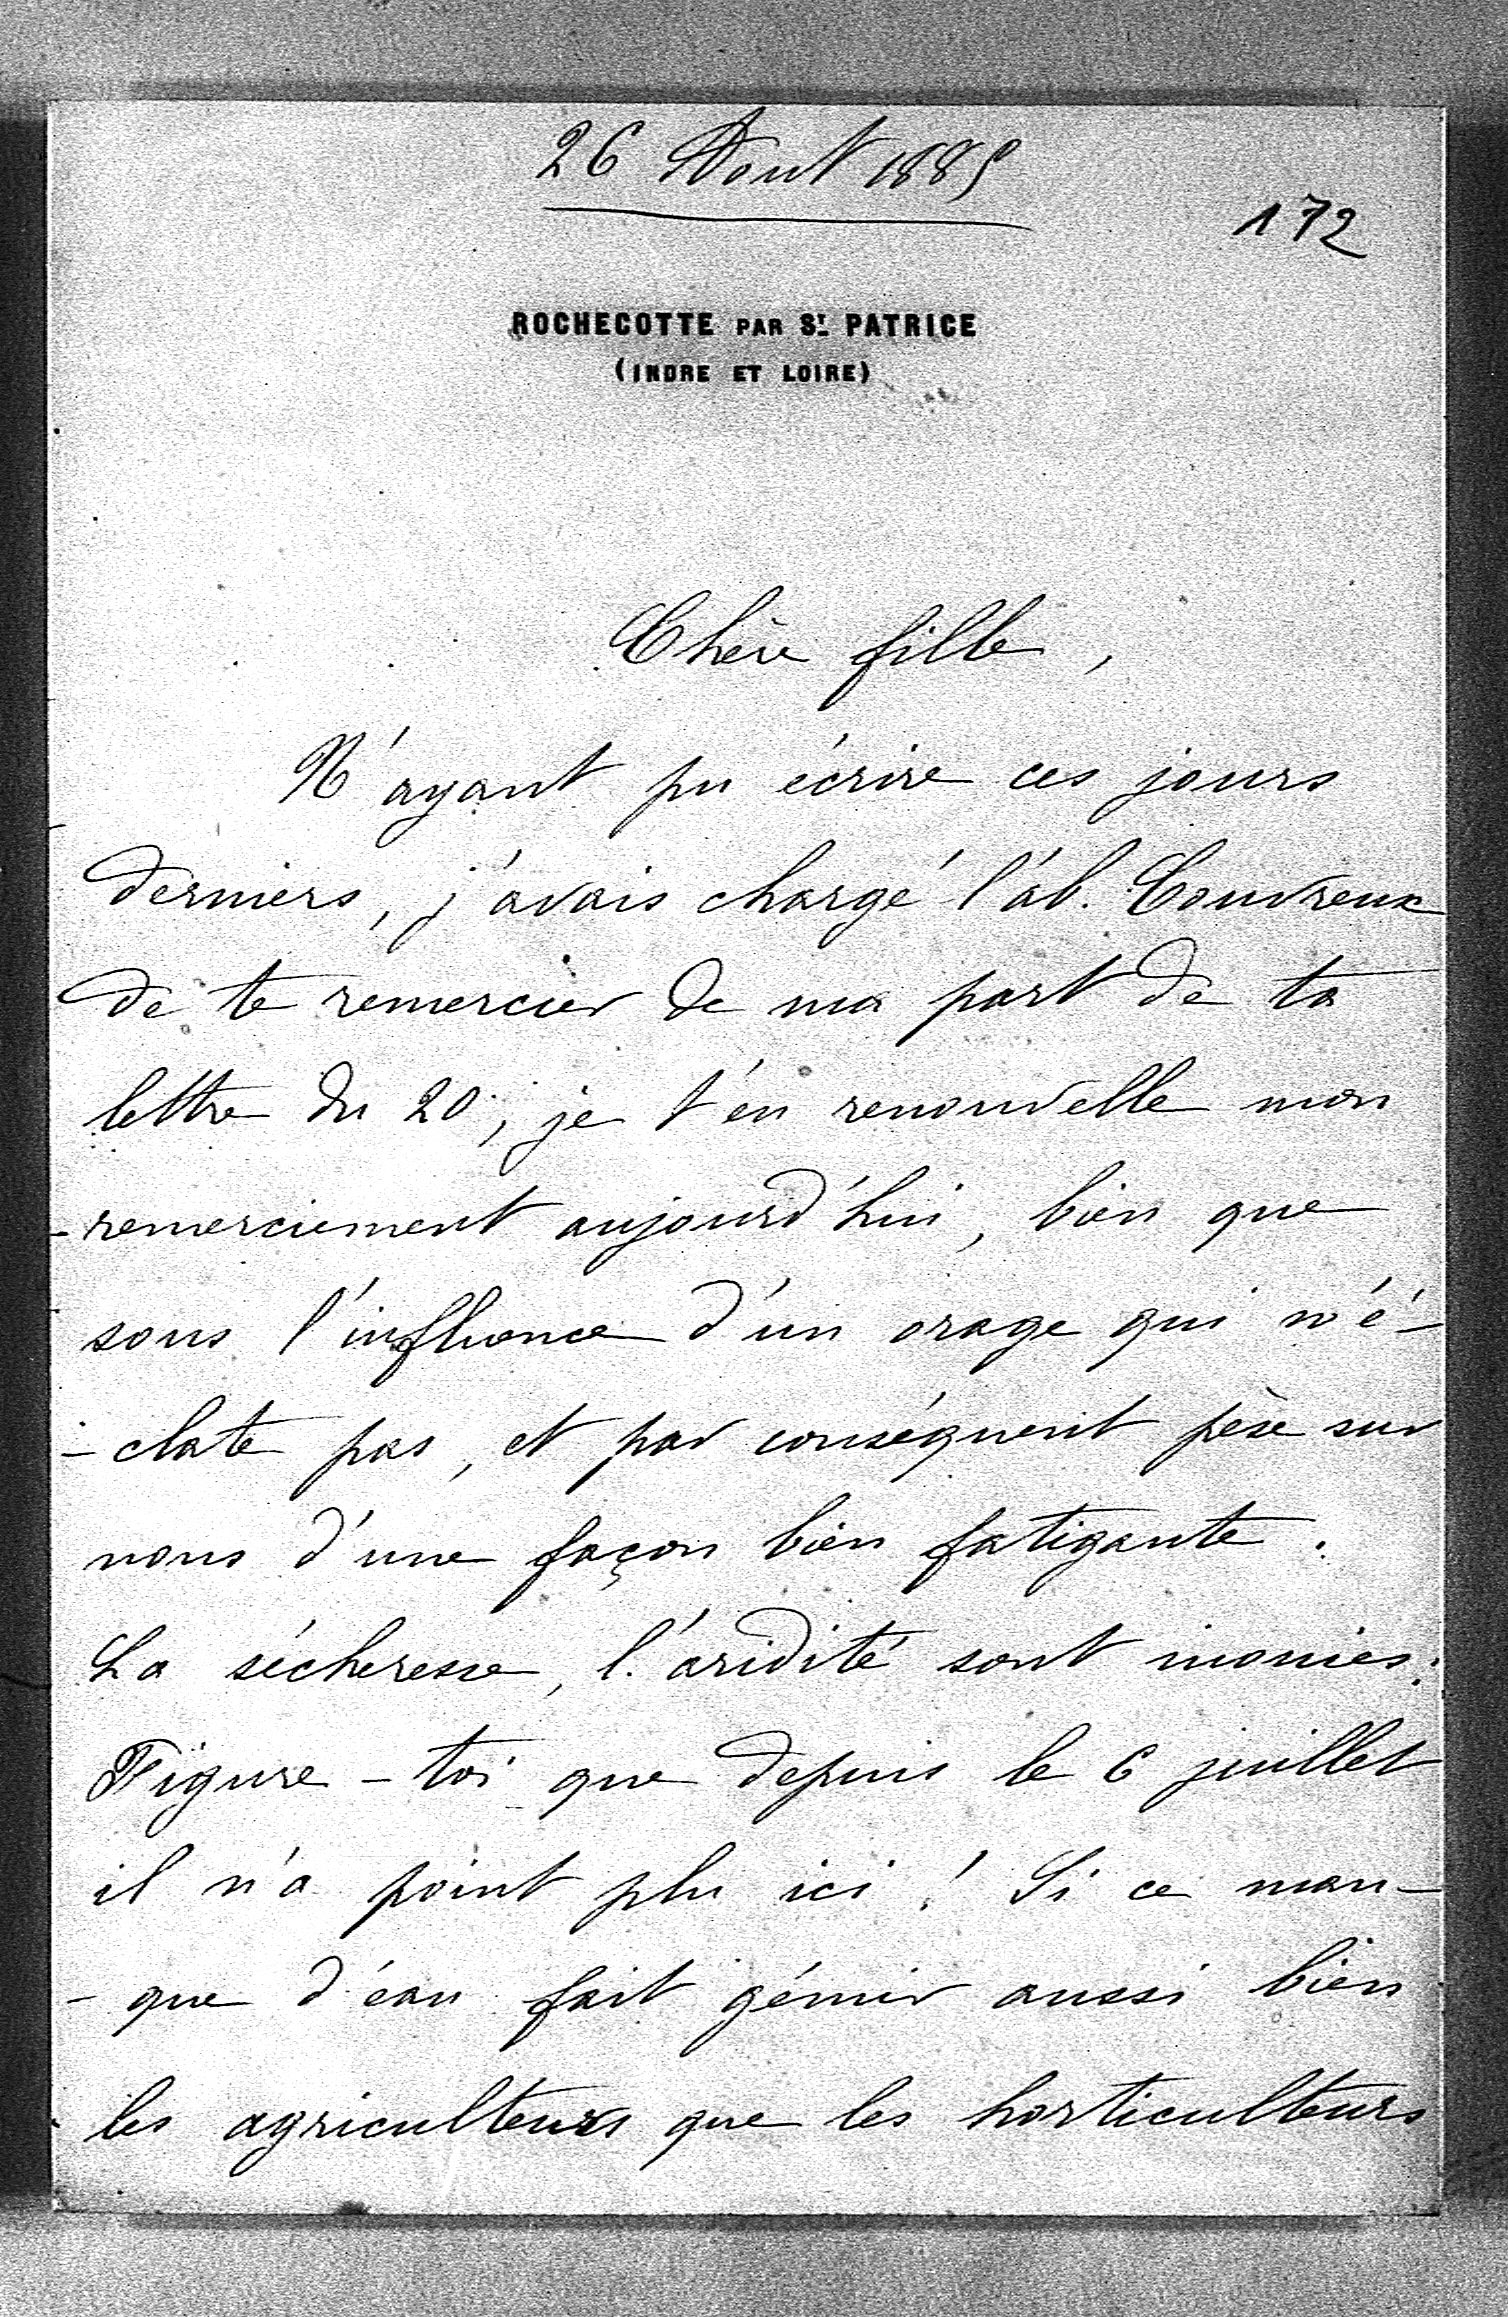 26 Aout 1885
172
ROCHECOTTE PAR ST. PATRICE
(INDRE ET LOIRE)
Chère fille,
N'ayant pu écrire ces jours
derniers, j'avais chargé l'ab. Couvreux
de te remercier de ma part de ta
lettre du 20; je t'en renouvelle mon
remerciement aujourd'hui, bien que
sous l'influence d'un orage qui n'é-
-clate pas, et par conséquent pèse sur
nous d'une façon bien fatigante.
La sécheresse, l'aridité sont inouies:
Figure-toi que depuis le 6 juillet
il n'a point plu ici! Si ce man-
-que d'eau fait gémir aussi bien
les agriculteurs que les horticulteurs